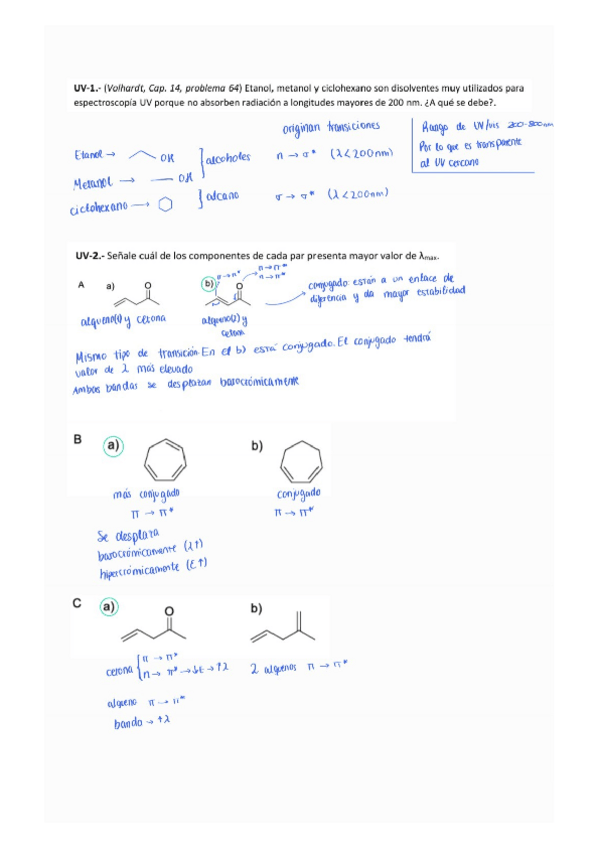 UV-1.- (Volhardt, Cap. 14, problema 64) Etanol, metanol y ciclohexano son disolventes muy utilizados para
espectroscopía UV porque no absorben radiación a longitudes mayores de 200 nm. ¿A qué se debe?.
originan transiciones
Rango de UV/vis 200-800nm
Por lo que es transparente
al UV cercano
Etanol → OH
Metanol → OH
alcoholes n → σ* (λ<200nm)
ciclohexano → alcano σ → σ* (λ<200nm)
UV-2.- Señale cuál de los componentes de cada par presenta mayor valor de λmax.
A a) O b) O
π → π*
n → π*
π → π*
conjugado están a un enlace de
diferencia y da mayor estabilidad
alqueno(1) y cetona
alqueno(1) y
cetona
Mismo tipo de transición. En el b) está conjugado. El conjugado tendrá
valor de λ más elevado
Ambas bandas se desplazan batocrómicamente
B a) b)
más conjugado
π → π*
conjugado
π → π*
Se desplaza
batocrómicamente (λ↑)
hipercrómicamente (ε↑)
C a) O b)
cetona π → π*
n → π* → ↓E → ↑λ
2 alquenos π → π*
alqueno π → π*
banda → ↑λ